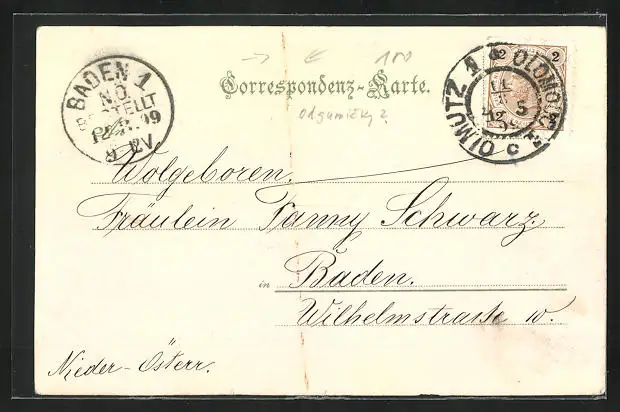 Correspondenz-Karte.
100
BADEN 1
N.Ö.
BESTELLT
99
OLMÜTZ 1 OLOMOUC
5
2 2
Wolgeboren.
Fräulein Fanny Schwarz.
in Baden.
Wilhelmstraße 10.
Nieder-Österr.